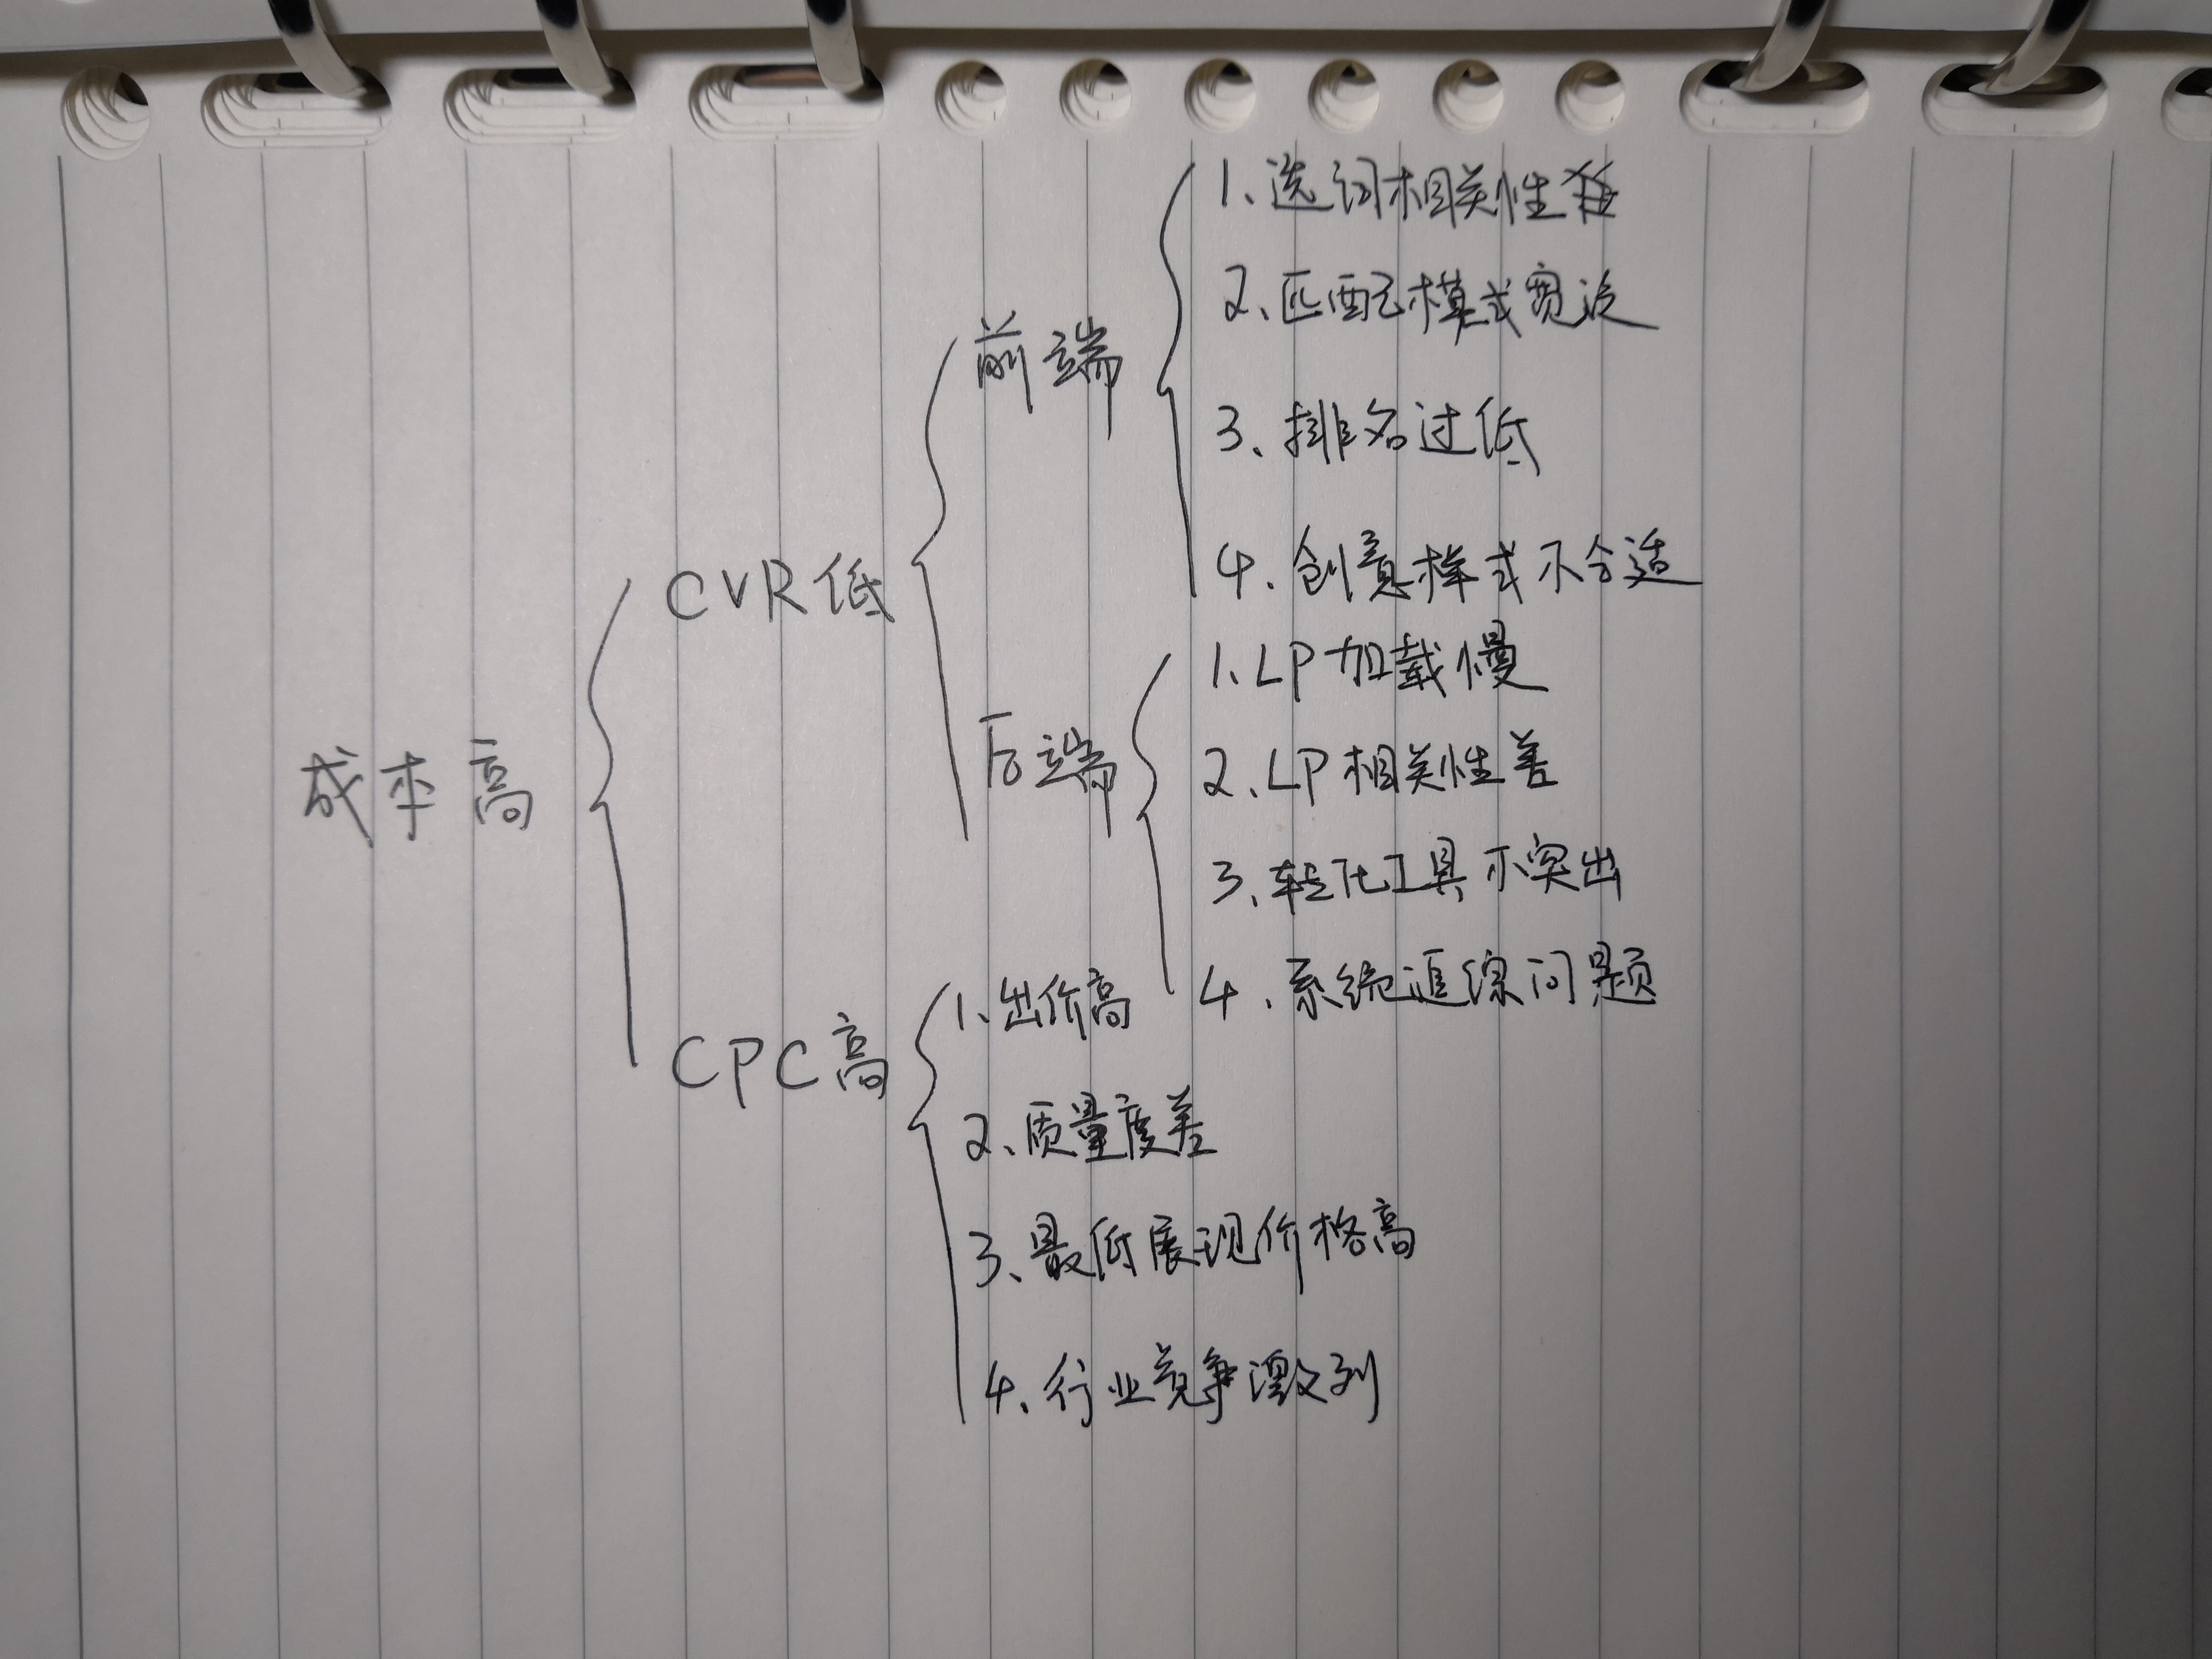 成本高
CVR低
前端
1、选词相关性差
2、匹配模式宽泛
3、排名过低
4、创意样式不合适
后端
1、LP加载慢
2、LP相关性差
3、转化工具不突出
4、系统追踪问题
CPC高
1、出价高
2、质量度差
3、最低展现价格高
4、行业竞争激烈